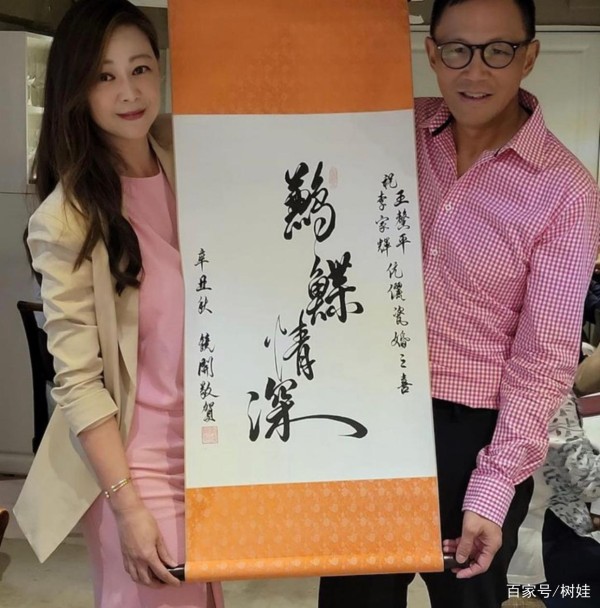 祝王馨平
李家輝
伉儷瓷婚之喜
鶼鰈情深
辛丑秋 敬賀
百家号/树娃